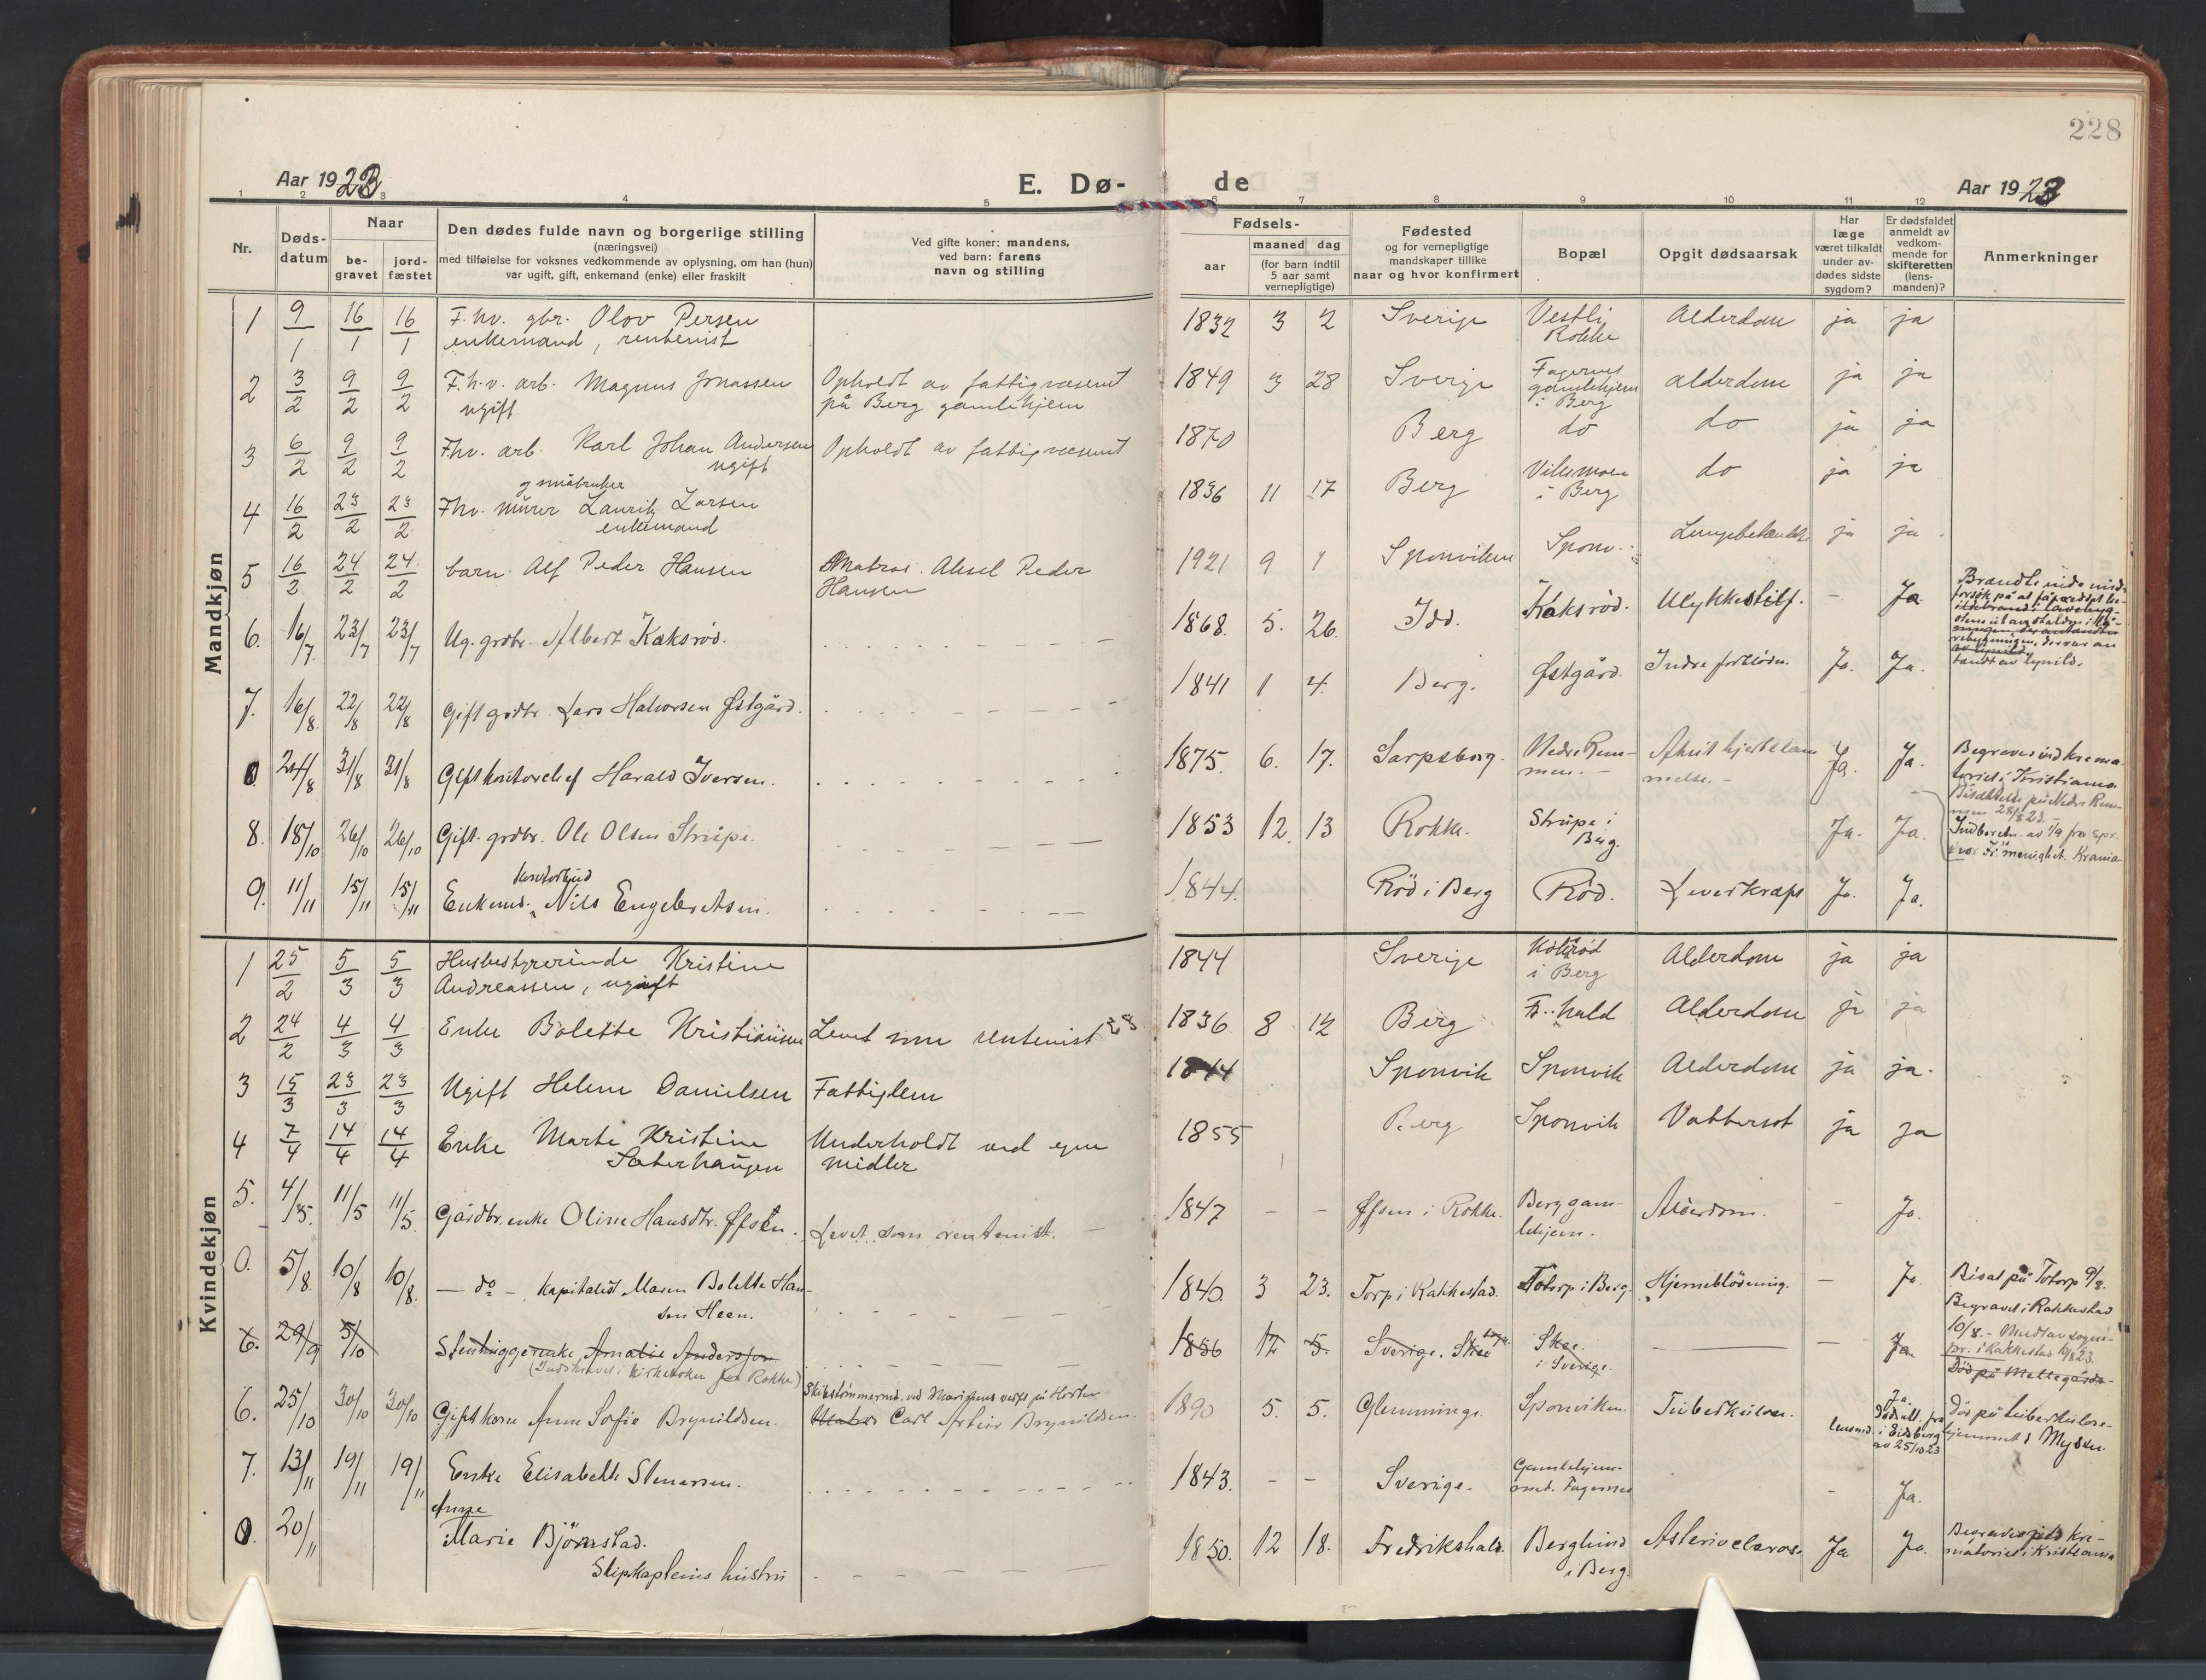 228
Aar 1923
E. Dø-
de
Aar 1923
1 2 3 4 5 6 7 8 9 10 11 12
Nr.
Døds-
datum
Naar
be-
gravet
jord-
fæstet
Den dødes fulde navn og borgerlige stilling
(næringsvei)
med tilføielse for voksnes vedkommende av oplysning, om han (hun)
var ugift, gift, enkemand (enke) eller fraskilt
Ved gifte koner: mandens,
ved barn: farens
navn og stilling
Fødsels-
aar
maaned dag
(for barn indtil
5 aar samt
vernepligtige)
Fødested
og for vernepligtige
mandskaper tillike
naar og hvor konfirmert
Bopæl
Opgit dødsaarsak
Har
læge
været tilkaldt
under av-
dødes sidste
sygdom?
Er dødsfaldet
anmeldt av
vedkom-
mende for
skifteretten
(lens-
manden)?
Anmerkninger
Mandkjøn
1 9/1 16/1 16/1 F. hv. gbr. Olov Persen
enkemand, rentenist
1832 3 2 Sverige Vestli
Rokke
Alderdom ja ja
2 3/2 9/2 9/2 F.h.v. arb. Magnus Jonassen
ugift
Opholdt av fattigvæsenet
på Berg gamlehjem
1849 3 28 Sverige Fagernes
gamlehjem
i Berg
alderdom ja ja
3 6/2 9/2 9/2 Fhv. arb. Karl Johan Andersen
ugift
Opholdt av fattigvæsenet
1870 Berg do do ja ja
4 16/2 23/2 23/2 og småbruker
Fhv. murer Lauritz Larsen
enkemand
1836 11 17 Berg
i Berg
do ja ja
5 16/2 24/2 24/2 barn Alf Peder Hansen
Matros Aksel Peder
Hansen
1921 9 1 Sponviken Sponv. ja ja
6. 16/7 23/7 23/7 Ug. grdbr. Albert Kaksrød.
1868. 5. 26. Idd. Kaksrød. Ulykkestilf. - Ja
Brændte inde ved
forsøk på at få
tændt av lynild.
7. 16/8 22/8 22/8 Gift grdbr. Lars Halvorsen Østgård.
1841 1 4. Berg. Østgård. Indre forblødn. Ja. Ja.
0. 24/8 31/8 31/8 Gift kontorchef Harald Iversen.
1875. 6. 17. Sarpsborg. Nedre Rem-
men. -
Akut hjertelam
melse. -
Ja. Ja.
Begraves ved krema-
toriet i Kristiania
Bisættelse på Nedre Rem-
men 28/8 23. -
Indberetn. av 1/9 fra spr.
i vor Fr. menighet Krania
8. 18/10 26/10 26/10 Gift. grdbr. Ole Olsen Strupe.
1853 12. 13 Rokke. Strupe i
Berg.
Ja. Ja.
9. 11/11 15/11 15/11 kontorbud
Enkemd. Nils Engebretsen.
1844. Rød i Berg Rød. Leverkræft Ja. Ja.
Kvindekjøn
1 25/2 5/3 5/3 Husbestyrerinde Kristine
Andreassen, ugift
1844 Sverige
i Berg
Alderdom ja ja
2 24/2 4/3 4/3 Enke Bolette Kristiansen Levet som rentenist
1836 8 12 Berg Fr. hald Alderdom ja ja
3 15/3 23/3 23/3 Ugift Helene Danielsen Fattiglem
1844 Sponvik Sponvik Alderdom ja ja.
4 7/4 14/4 14/4 Enke Marte Kristine
Sæterhaugen
Underholdt ved egne
midler
1855 Berg Sponvik Vattersot ja ja
5. 4/5. 11/5 11/5. Gårdbr. enke Oline Hansdtr. Øfsen. Levet som rentenist. -
1847 - - Øfsen i Rokke. Berg gam-
lehjem.
Alderdom. - Ja.
0. 5/8. 10/8 10/8. - do - kapitalist Maren Bolette Han-
sen Heen.
1840. 3 23. Torp i Rakkestad. Totorp i Berg. Hjerneblødning. - Ja.
Bisat på Totorp 9/8.
Begravet i Rakkestad
10/8. -
6. 29/9 5/10 Stenhuggerenke Amalie Andersson
(Indskrevet i kirkeboken for Rokke)
1856 12 5. Sverige. Skee Skee.
i Sverige.
- Ja
6. 25/10 30/10 30/10 Gift kone Anne Sofie Brynildsen.
Carl Arthur Brynildsen.
1890 5. 5. Glemminge. Sponviken. Tuberkulose. Ja.
Dødsatt. fra
lensmd. i Eidsberg
av 25/10 23
Død på tuberkulose-
hjemmet i Mysen
7. 13/11 19/11 19/11 Enke Elisabeth Stenersen.
1843. - - Sverige. Gamlehjem-
met. Fagernes
- Ja.
0. 20/11 Anne
Marie Bjørnstad.
Skipskapteins hustru
1850. 12 18. Fredrikshald. Berglund
i Berg.
Ja Ja.
Begraves ved kre-
matoriet i Kristiania